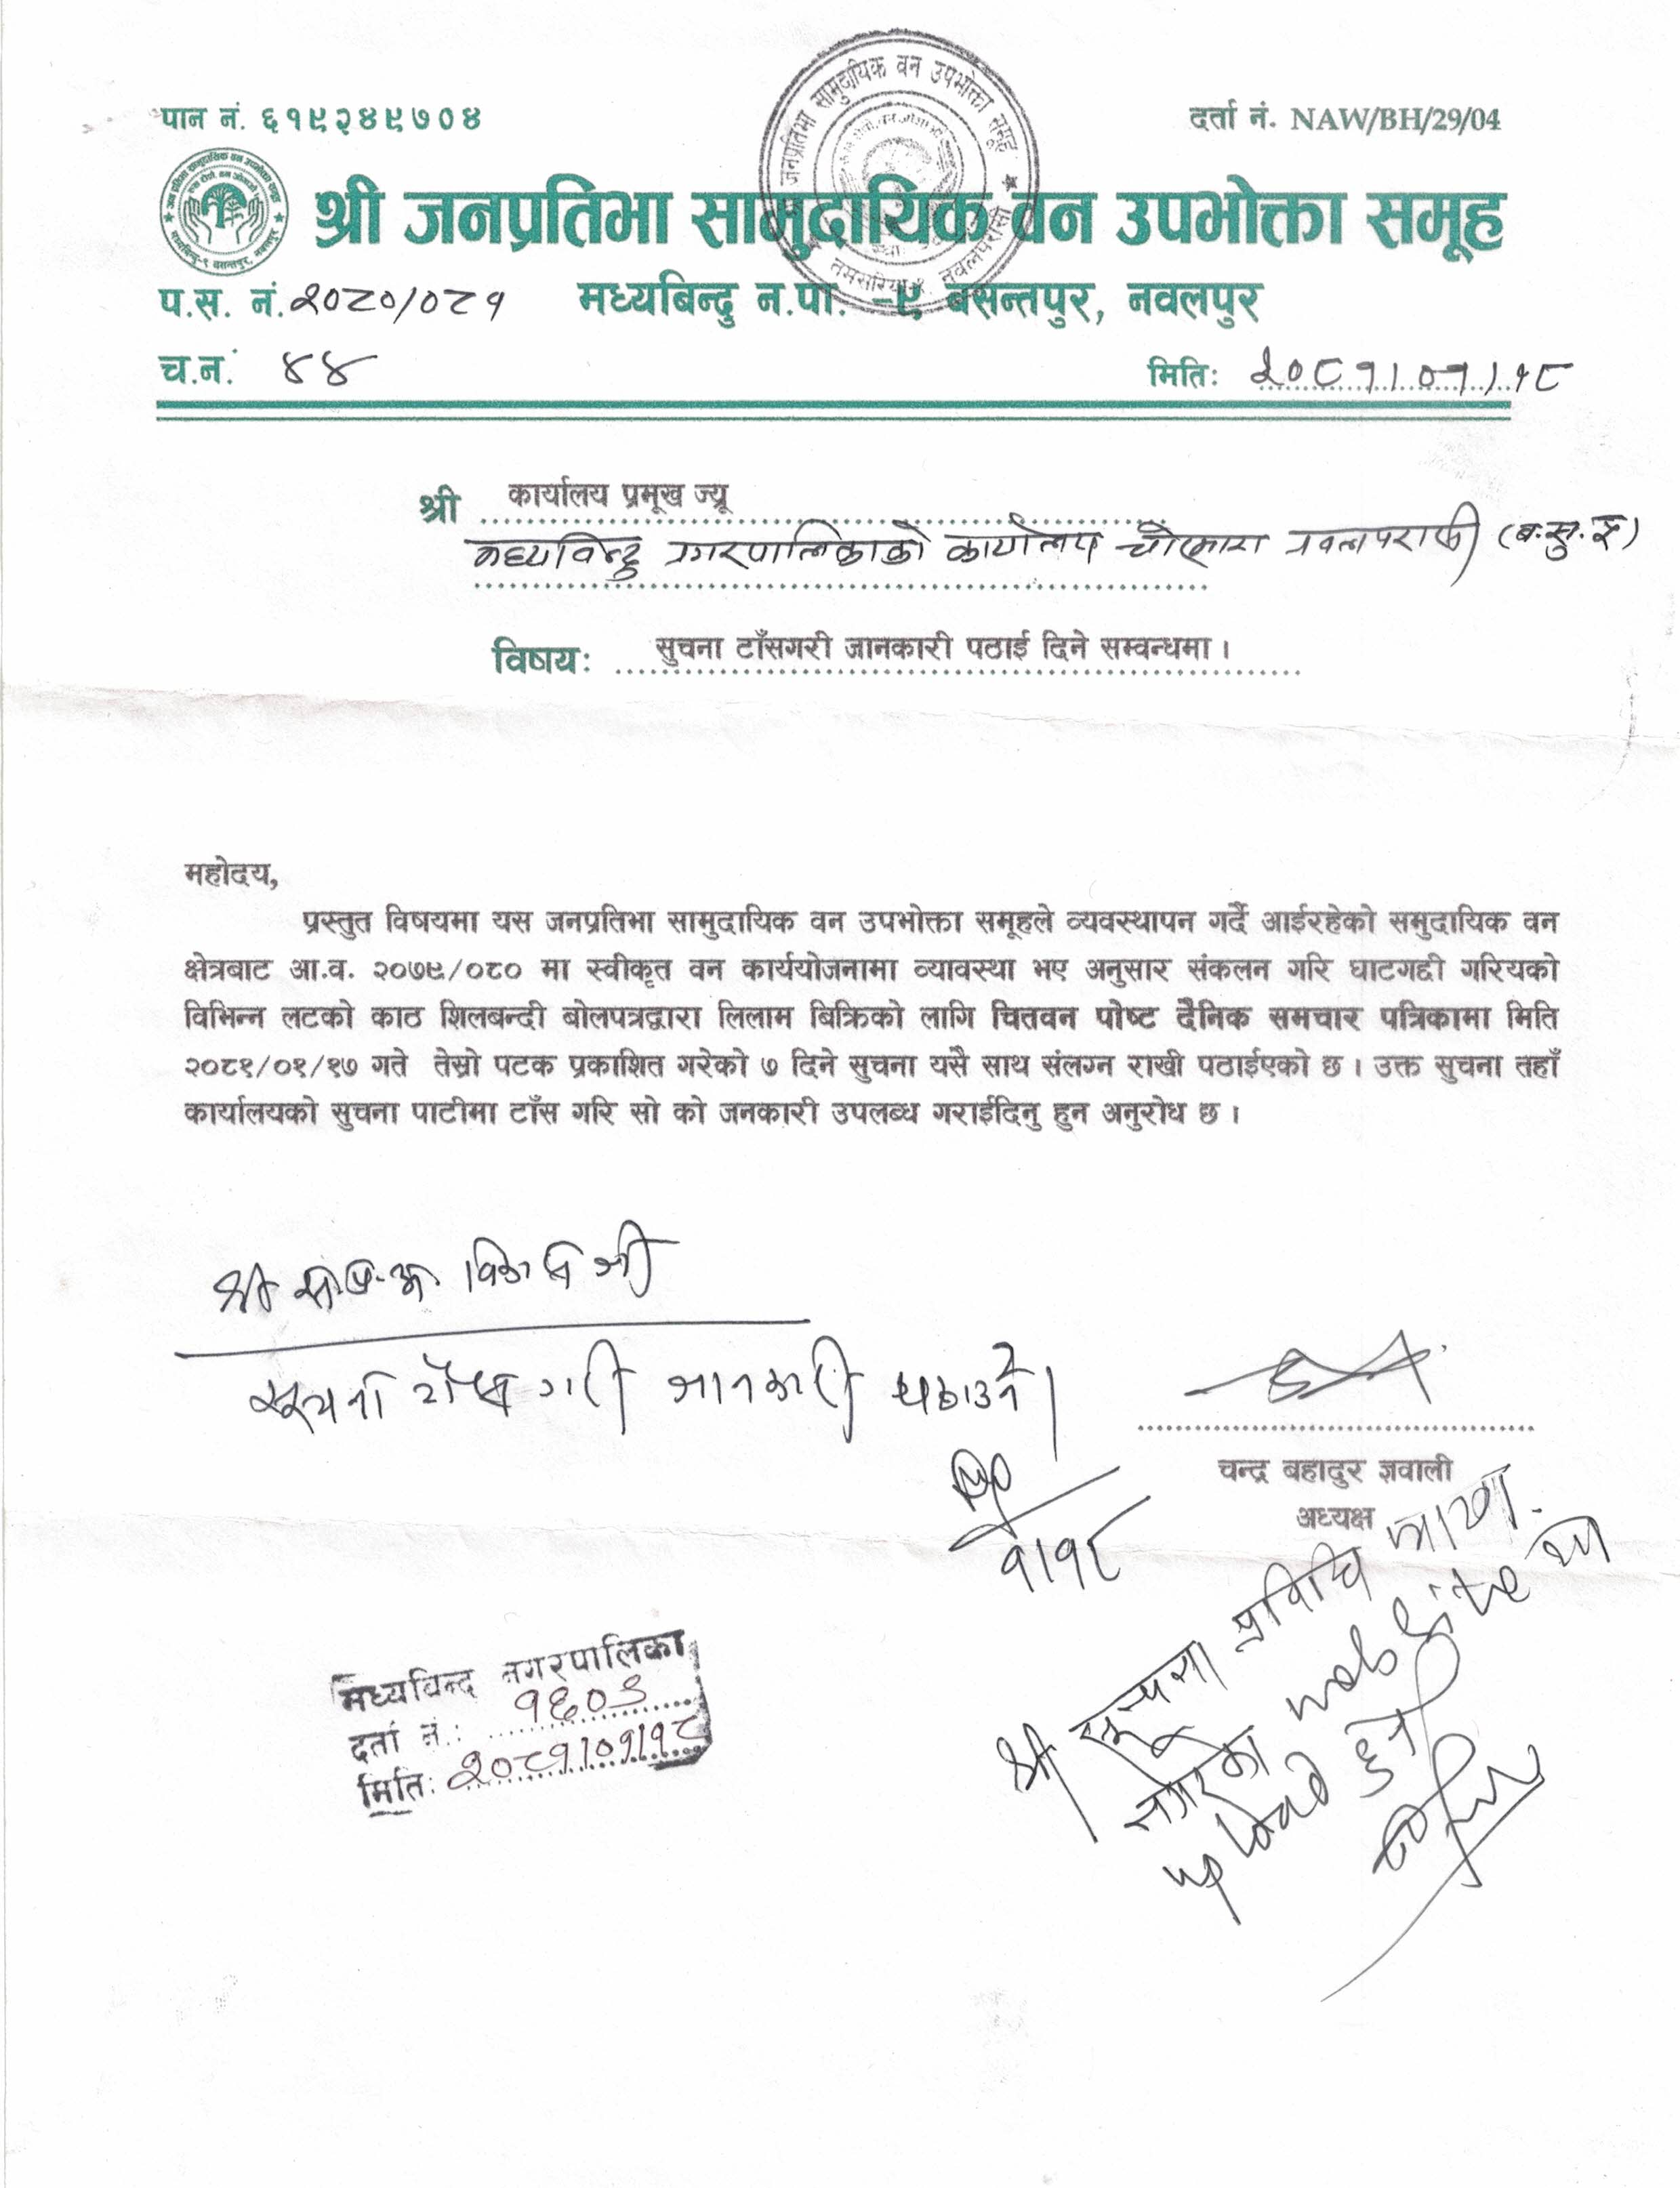 पान नं. ६१९२४९७०४
दर्ता नं. NAW/BH/29/04
श्री जनप्रतिभा सामुदायिक वन उपभोक्ता समूह
प.स. नं. २०८०/०८१
मध्यबिन्दु न.पा. -९ बसन्तपुर, नवलपुर
च.न. ४४
मिति: २०८१।०१।१८
श्री कार्यालय प्रमूख ज्यू
मध्यविन्दु नगरपालिकाको कार्यालय चोरमारा नवलपरासी (ब.सु.पू)
विषय: सुचना टाँसगरी जानकारी पठाई दिने सम्वन्धमा ।
महोदय,
प्रस्तुत विषयमा यस जनप्रतिभा सामुदायिक वन उपभोक्ता समूहले व्यवस्थापन गर्दै आईरहेको समुदायिक वन
क्षेत्रबाट आ.व. २०७९/०८० मा स्वीकृत वन कार्ययोजनामा व्यावस्था भए अनुसार संकलन गरि घाटगद्दी गरियको
विभिन्न लटको काठ शिलबन्दी बोलपत्रद्वारा लिलाम बिक्रिको लागि चितवन पोष्ट दैनिक समचार पत्रिकामा मिति
२०८१/०१/१७ गते तेस्रो पटक प्रकाशित गरेको ७ दिने सुचना यसै साथ संलग्न राखी पठाईएको छ । उक्त सुचना तहाँ
कार्यालयको सुचना पाटीमा टाँस गरि सो को जनकारी उपलब्ध गराईदिनु हुन अनुरोध छ ।
श्री
सूचना टाँस गरी जानकारी पठाउने ।
१।१८
चन्द्र बहादुर ज्ञवाली
अध्यक्ष
श्री सूचना प्रविधि शाखा
नगरको website मा
upload हुन
मध्यविन्दु नगरपालिका
दर्ता नं.: १६०३
मिति: २०८१।०१।१८